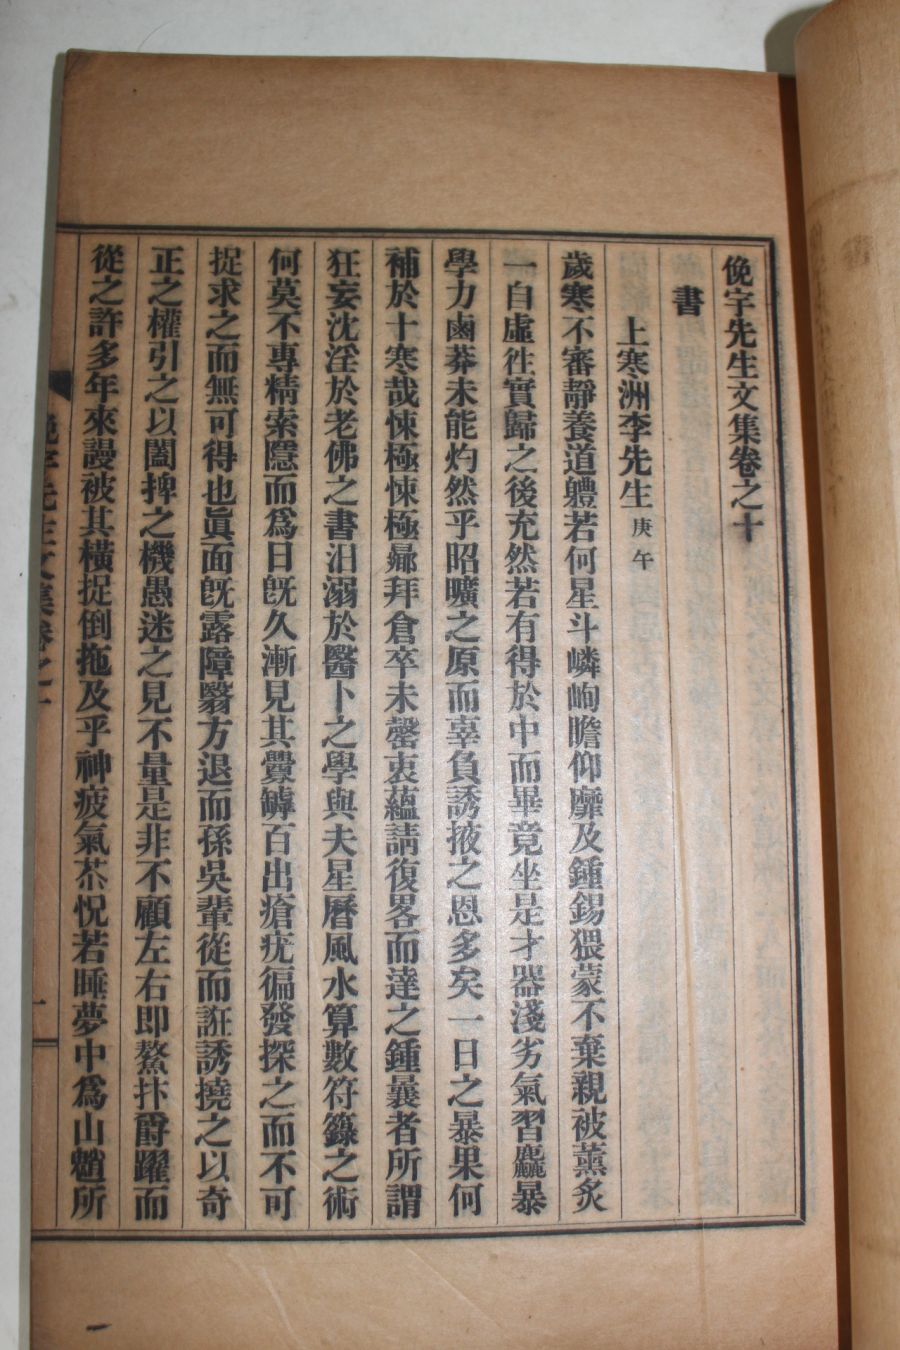 俛宇先生文集卷之十
書
上寒洲李先生 庚午
歲寒不審靜養道軆若何星斗嶙峋瞻仰靡及鍾錫猥蒙不棄親被薰炙
一自虛徃實歸之後充然若有得於中而畢竟坐是才器淺劣氣習麤暴
學力鹵莽未能灼然乎昭曠之原而辜負誘掖之恩多矣一日之暴果何
補於十寒哉悚極悚極歸拜倉卒未罄衷蘊請復畧而達之鍾曩者所謂
狂妄沈淫於老佛之書汩溺於醫卜之學與夫星曆風水算數符籙之術
何莫不專精索隱而爲日旣久漸見其釁罅百出瘡疣徧發探之而不可
捉求之而無可得也眞面旣露障翳方退而孫吳輩從而誑誘撓之以奇
正之權引之以闔捭之機愚迷之見不量是非不顧左右即鰲抃爵躍而
從之許多年來謾被其橫捉倒拖及乎神疲氣苶怳若睡夢中爲山魈所
俛宇先生文集卷之十
一